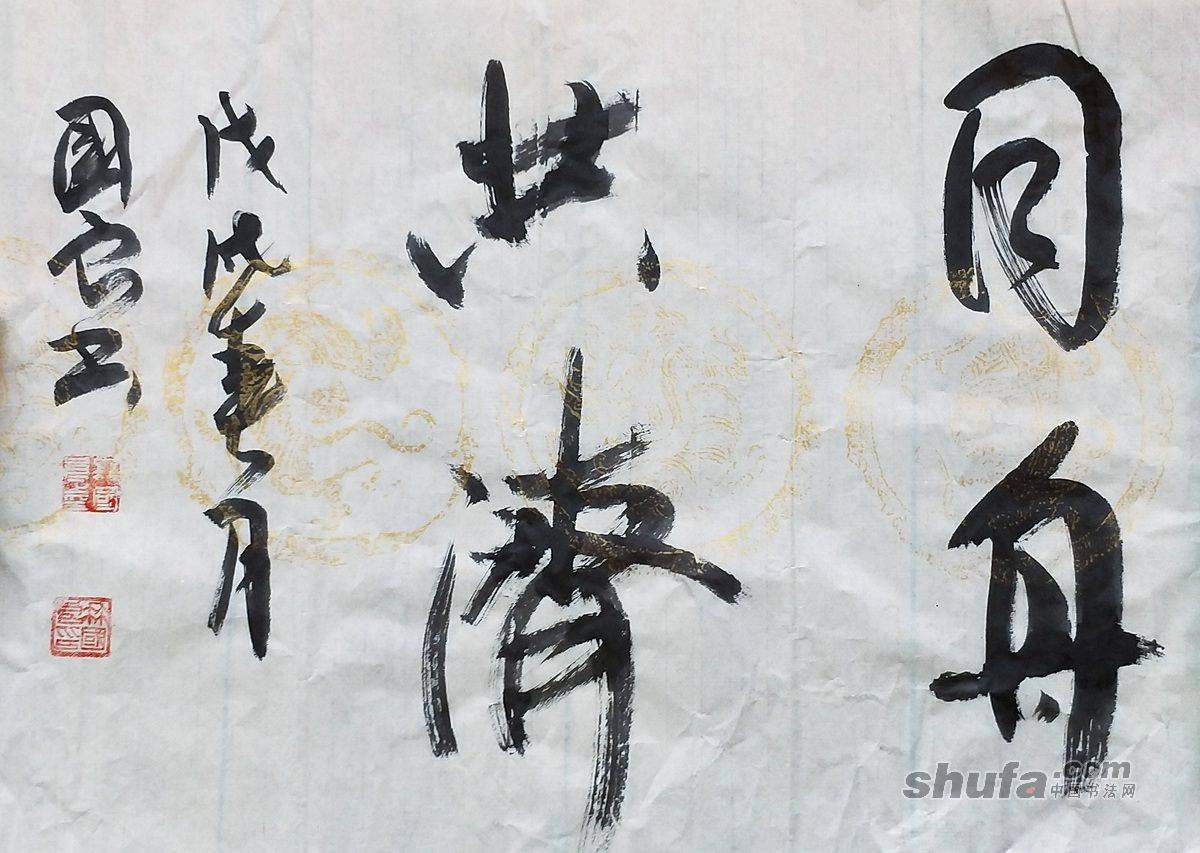 同舟
共濟
戊戌春月
國良书
shufa.com
中国书法网